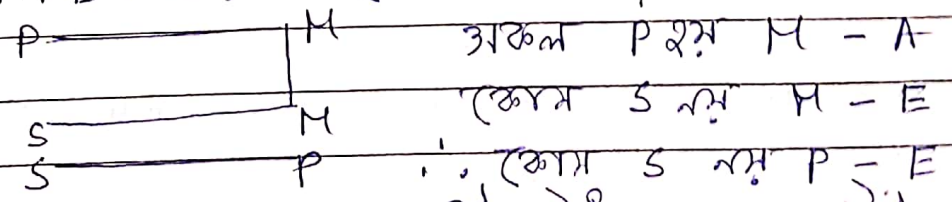 P M সকল P হয় M - A
S M কোন S নয় M - E
S P ∴ কোন S নয় P - E